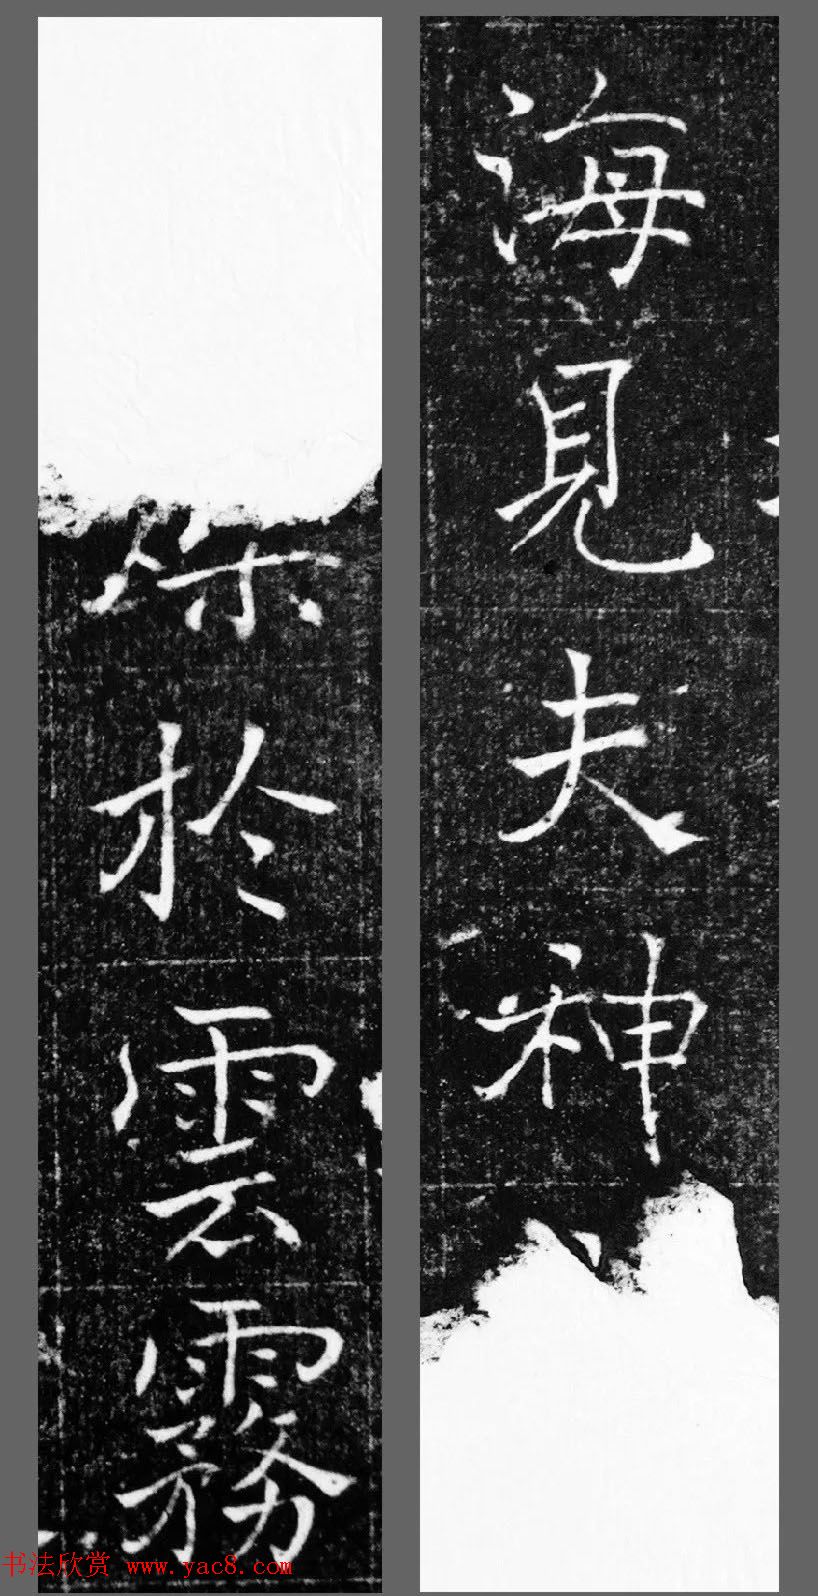 海見夫神
於雲霧
书法欣赏 www.yac8.com